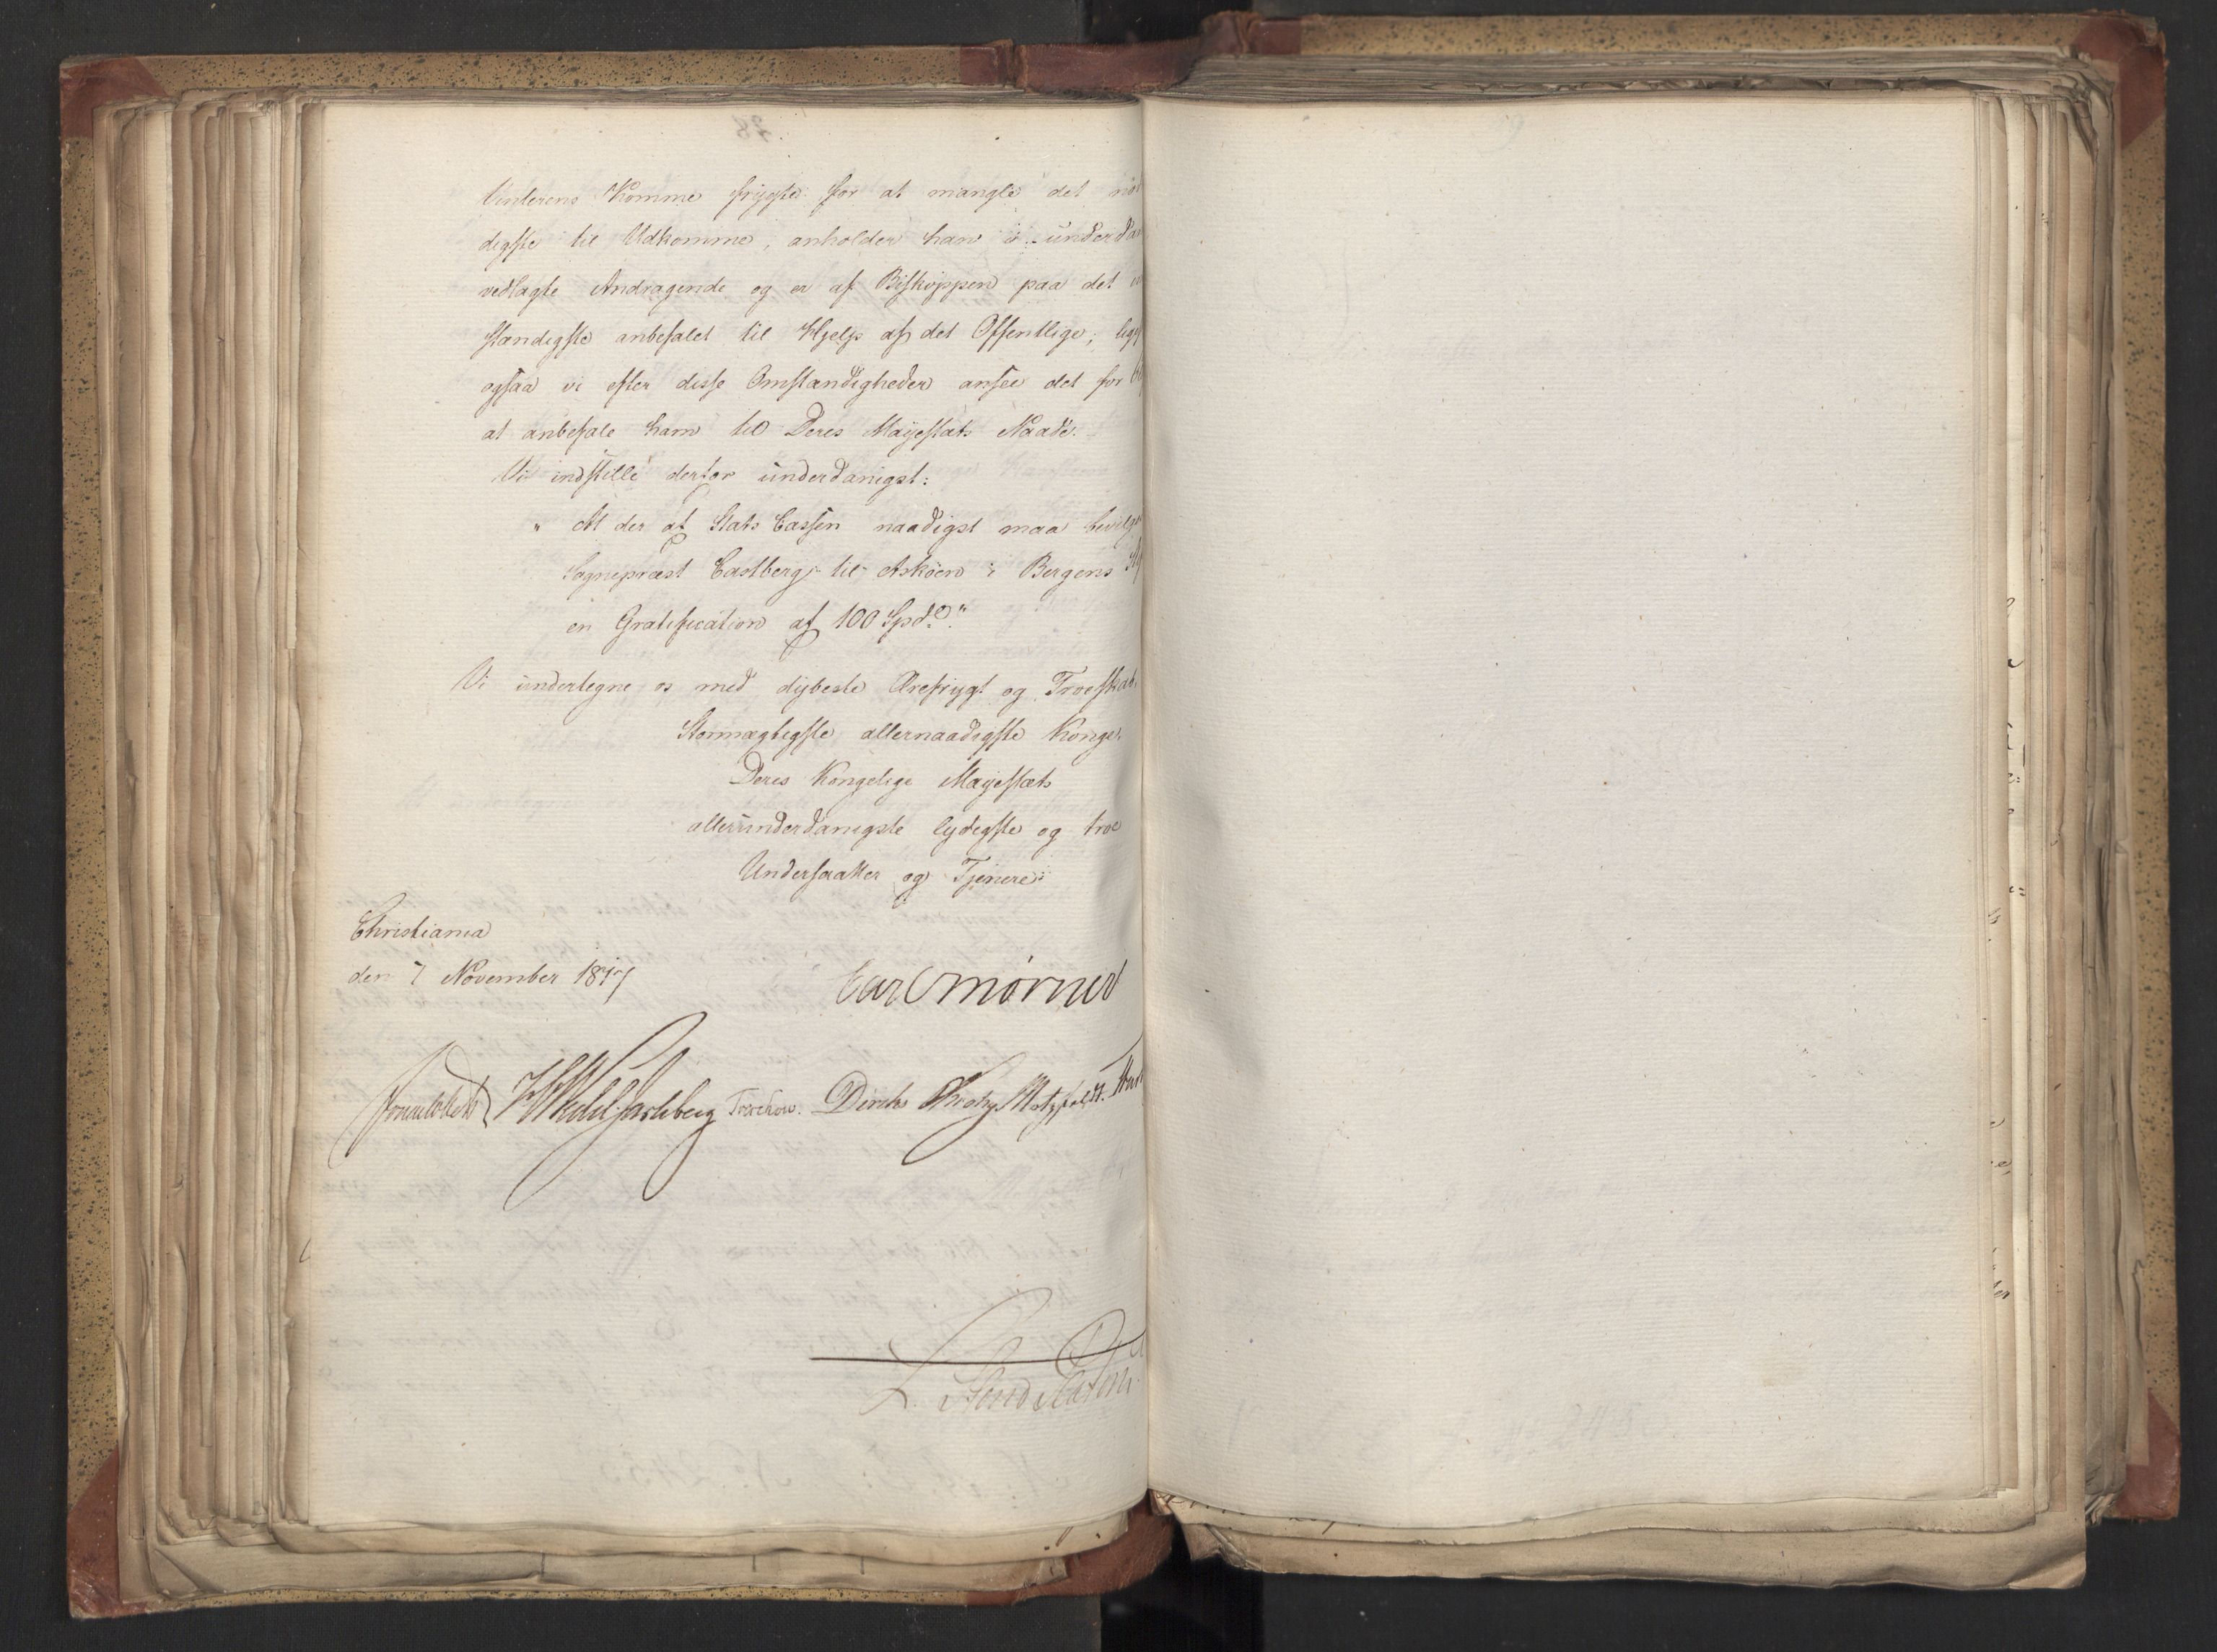 Vinterens Komme frygte for at mangle det nød
digste til Udkomme, anholder han i underda
vedlagte Andragende og er af Biskoppen paa det
stændigste anbefalet til Hjelp af det Offentlige; lige
ogsaa vi efter disse Omstændigheder ansee det for
at anbefale ham til Deres Majestæts Naade.
Vi indstille derfor underdanigst:
" At der af Stats Cassen naadigst maa bevilges
Sognepræst Castberg til Askøen i Bergens
en Gratification af 100 Spd."
Vi undertegne os med dybeste Ærefrygt og Troeskab.
Stormægtigste allernaadigste Konge.
Deres Kongelige Majestæts
allerunderdanigste lydigste og troe
Undersaatter og Tjenere:
Christiania
den 7 November 1817
Carl Mørner
Sommerhielm HWedel Jarlsberg Treschow. Diriks Krohg Motzfeldt.